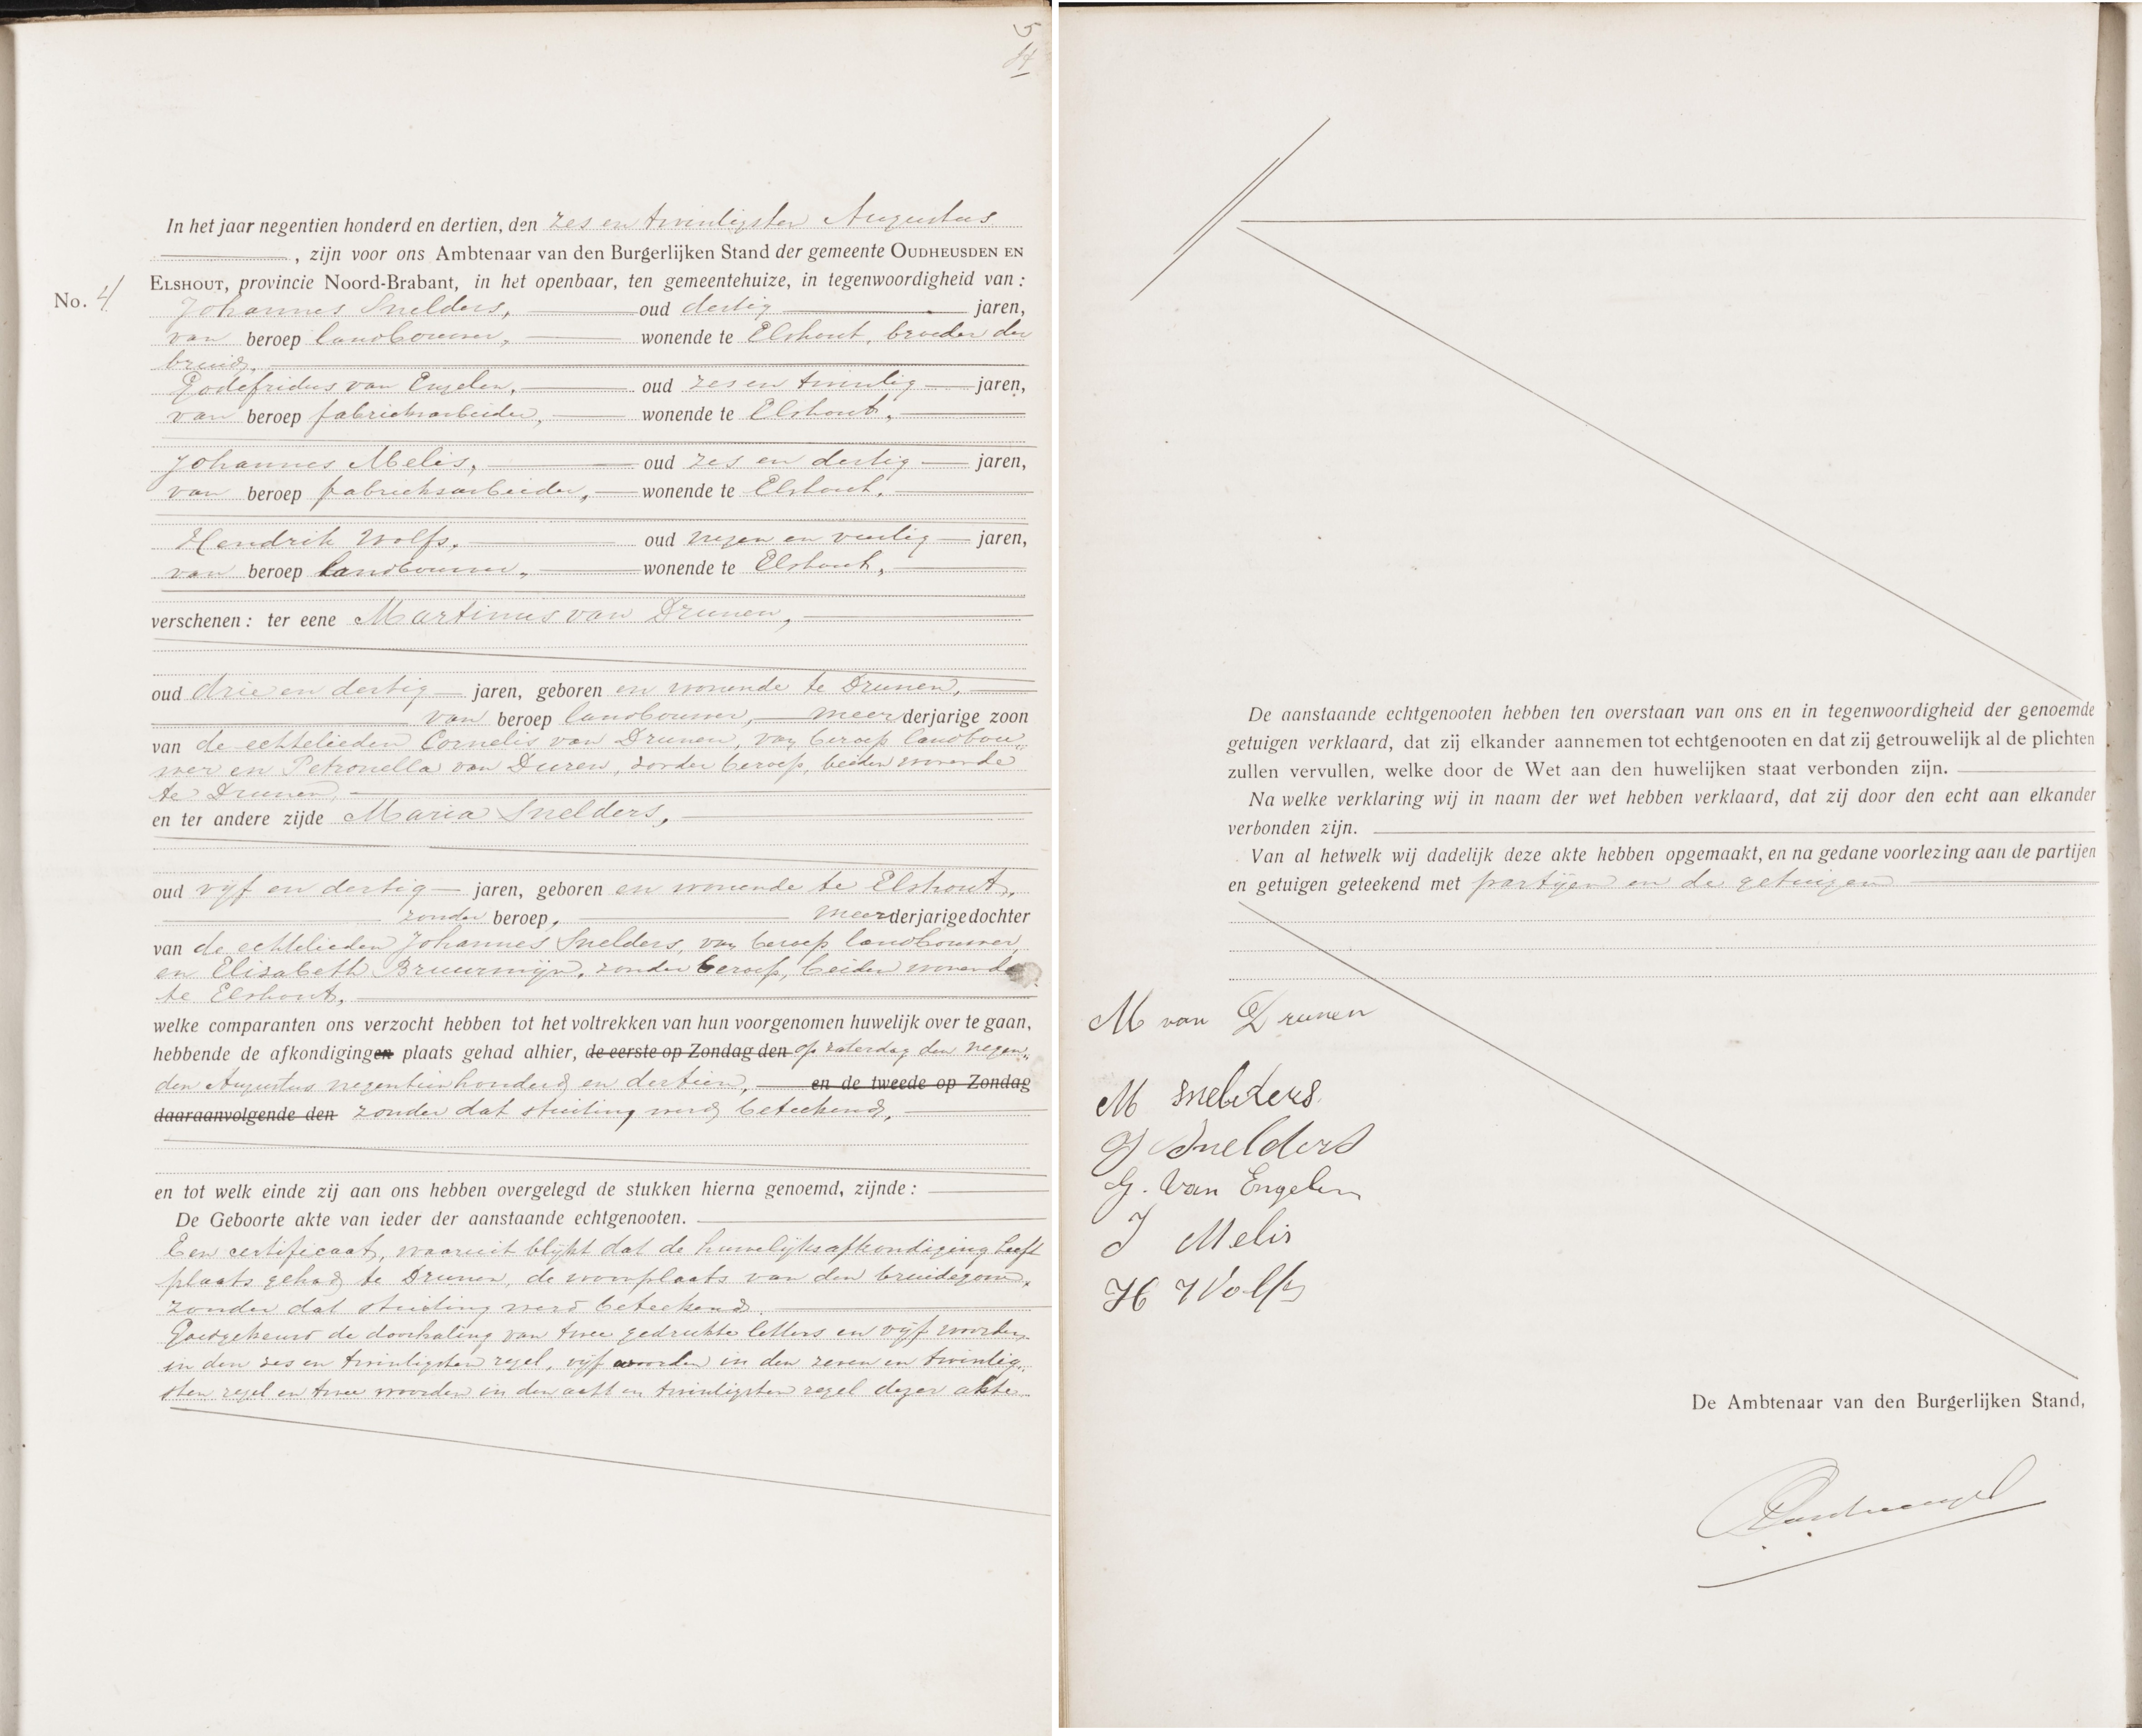 5
4
In het jaar negentien honderd en dertien, den zes en twintigsten Augustus
, zijn voor ons Ambtenaar van den Burgerlijken Stand der gemeente OUDHEUSDEN EN
No. 4 ELSHOUT, provincie Noord-Brabant, in het openbaar, ten gemeentehuize, in tegenwoordigheid van:
Johannes Snelders, oud dertig jaren,
van beroep landbouwer, wonende te Elshout, broeder der
bruid,
Godefridus van Engelen, oud zes en twintig jaren,
van beroep fabrieksarbeider, wonende te Elshout,
Johannes Melis, oud zes en dertig jaren,
van beroep fabrieksarbeider, wonende te Elshout,
Hendrik Wolfs, oud negen en veertig jaren,
van beroep landbouwer, wonende te Elshout,
verschenen: ter eene Martinus van Drunen,
oud drie en dertig jaren, geboren en wonende te Drunen,
van beroep landbouwer, meerderjarige zoon
van de echtelieden Cornelis van Drunen, van beroep landbou-
wer en Petronella van Duren, zonder beroep, beiden wonende
te Drunen,
en ter andere zijde Maria Snelders,
oud vijf en dertig jaren, geboren en wonende te Elshout,
zonder beroep, meerderjarige dochter
van de echtelieden Johannes Snelders, van beroep landbouwer,
en Elisabeth Bruurmijn, zonder beroep, beiden wonende
te Elshout,
welke comparanten ons verzocht hebben tot het voltrekken van hun voorgenomen huwelijk over te gaan,
hebbende de afkondigingen plaats gehad alhier, de eerste op Zondag den op zaterdag den negen-
den Augustus negentienhonderd en dertien, en de tweede op Zondag
daaraanvolgende den zonder dat stuiting werd beteekend,
en tot welk einde zij aan ons hebben overgelegd de stukken hierna genoemd, zijnde:
De Geboorte akte van ieder der aanstaande echtgenooten.
Een certificaat, waaruit blijkt dat de huwelijksafkondiging heeft
plaats gehad te Drunen, de woonplaats van den bruidegom,
zonder dat stuiting werd beteekend.
Goedgekeurd de doorhaling van twee gedrukte letters en vijf woorden
in den zes en twintigsten regel, vijf woorden in den zeven en twintig-
sten regel en twee woorden in den acht en twintigsten regel dezer akte.
De aanstaande echtgenooten hebben ten overstaan van ons en in tegenwoordigheid der genoemde
getuigen verklaard, dat zij elkander aannemen tot echtgenooten en dat zij getrouwelijk al de plichten
zullen vervullen, welke door de Wet aan den huwelijken staat verbonden zijn.
Na welke verklaring wij in naam der wet hebben verklaard, dat zij door den echt aan elkander
verbonden zijn.
Van al hetwelk wij dadelijk deze akte hebben opgemaakt, en na gedane voorlezing aan de partijen
en getuigen geteekend met partijen en de getuigen
M van Drunen
M Snelders.
J Snelders
G. Van Engelen
J Melis
H Wolfs
De Ambtenaar van den Burgerlijken Stand,